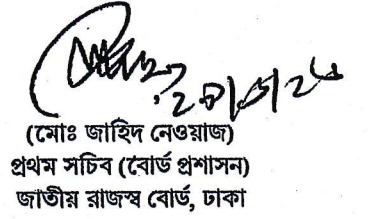 (মোঃ জাহিদ নেওয়াজ)
প্রথম সচিব (বোর্ড প্রশাসন)
জাতীয় রাজস্ব বোর্ড, ঢাকা